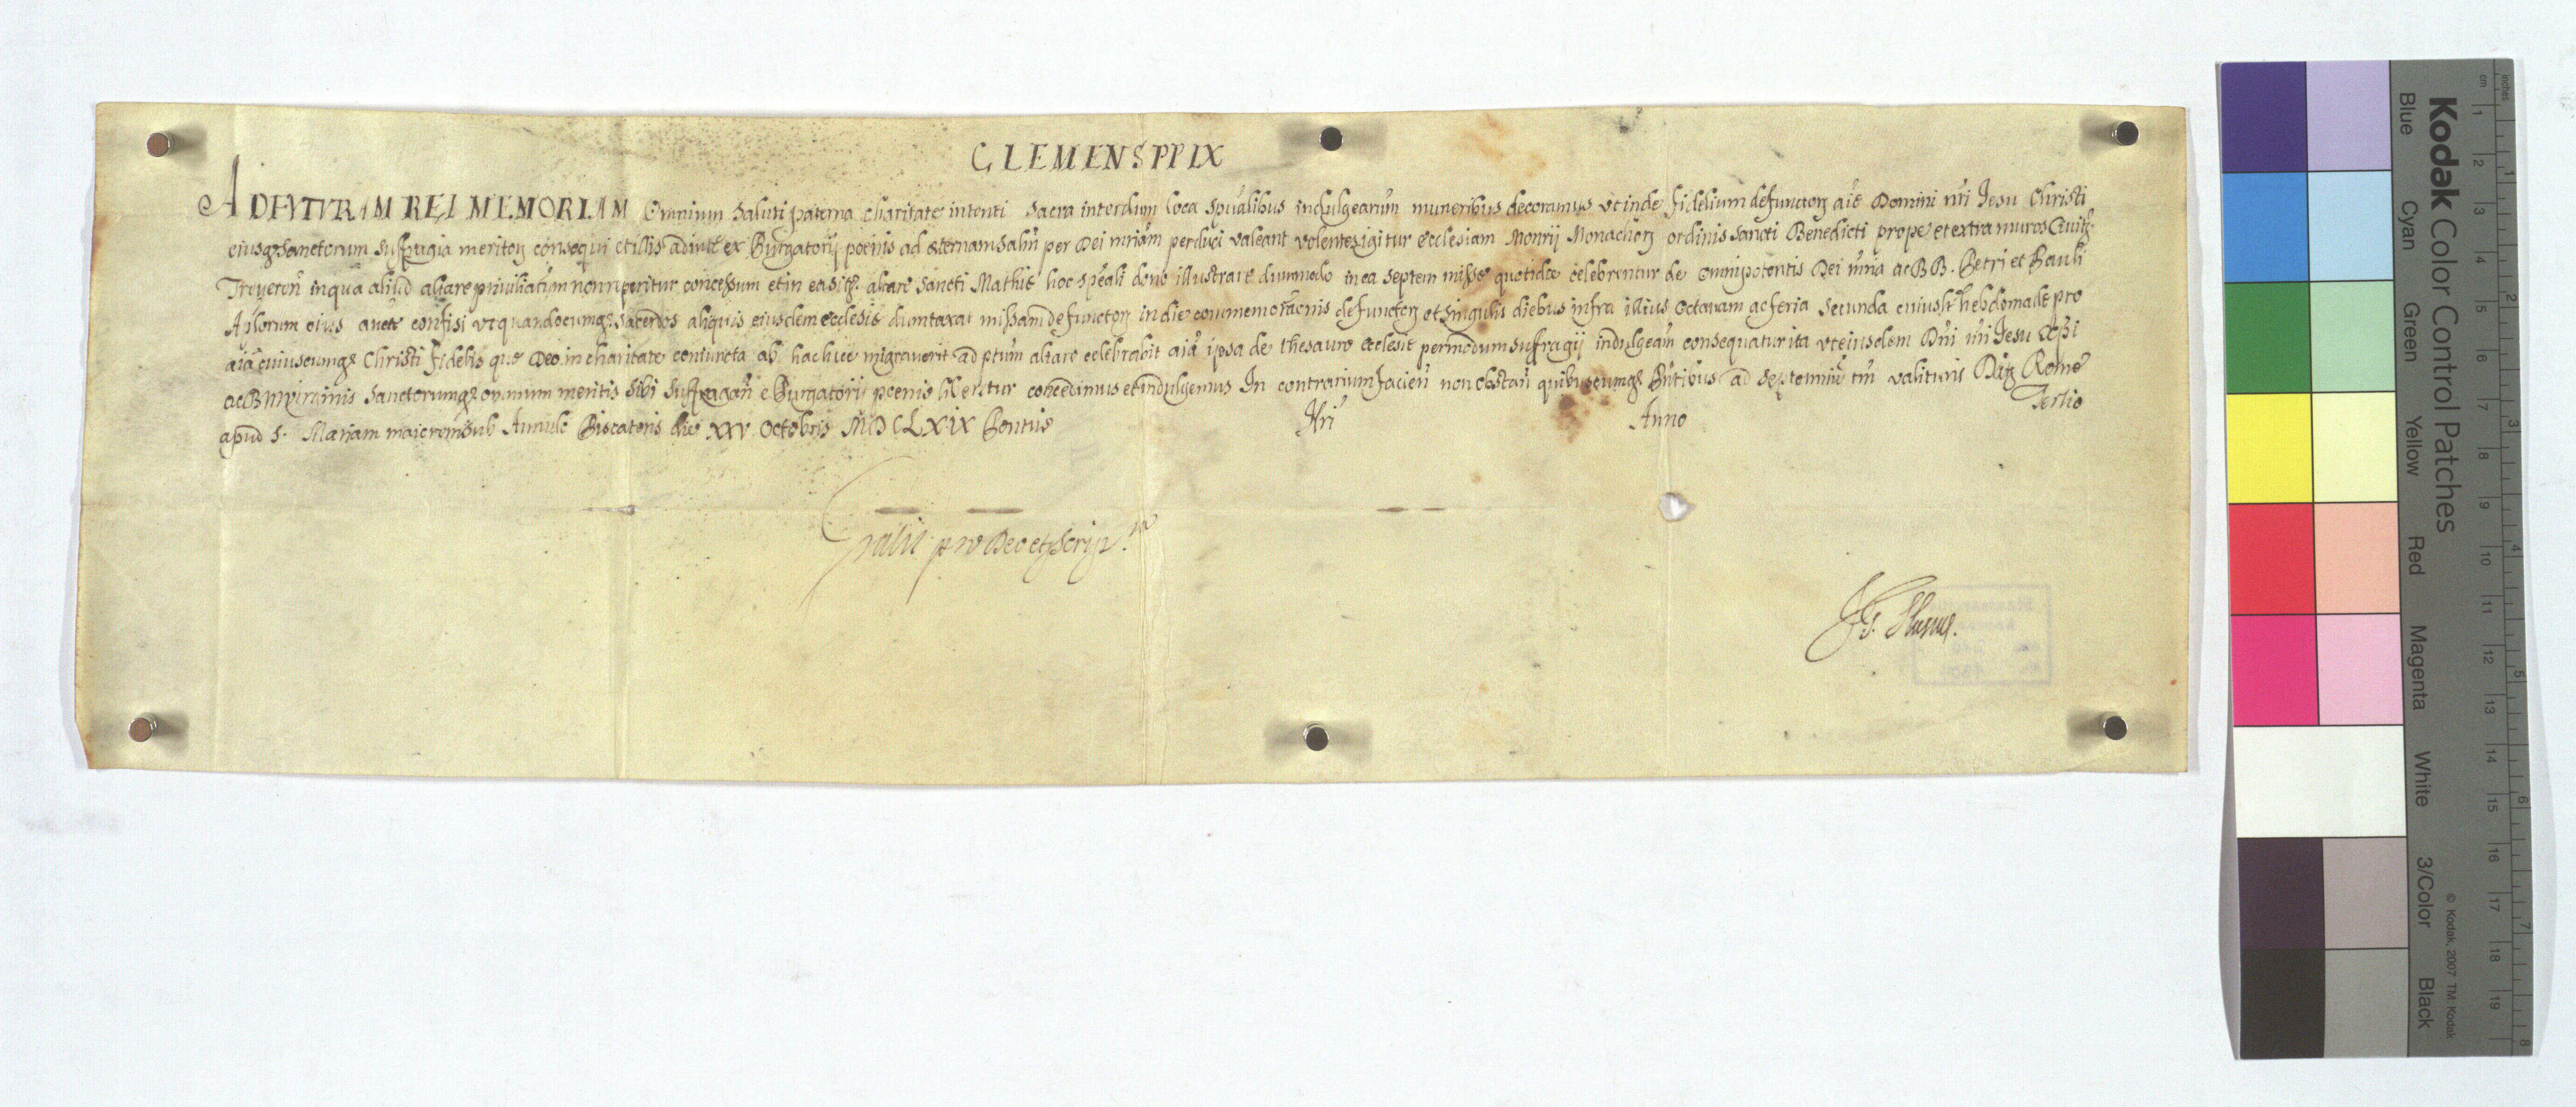 CLEMENS PP IX
AD FVTVRAM REI MEMORIAM Omnium Saluti paterna charitate intenti Sacra interdum loca Spũalibus indulgearũm muneribus decoramus vt inde fidelium defunctoꝝ aĩe Domini nr̃i Jesu Christi
eiusqꝫ Sanctorum Suffragia meritoꝝ consequi et illis adiut̃e ex Purgatorij poenis ad æternam Salũm per Dei mr̃iam perduci valeant volentes igitur Ecclesiam Monrij Monachoꝝ ordinis Sancti Benedicti prope et extra muros Ciuitꝫ
Treueren̄ in qua aliud altare priuiliatũm non reperitur concessum et in ea siт̃ altare Sancti Mathie hoc spẽali dono illustrare dummodo in ea septem misse quotidie celebrentur de omnipotentis Dei mr̃ia ac BB. Petri et Pauli
Aplorum eius aucte confisi vt quandocumqꝫ Sacerdos aliquis eiusdem ecclesie dumtaxat missam defunctoꝝ in die commemorãcnis defunctoꝝ et singulis diebus infra illius Octauam ac feria Secunda cuiuslt hebdomade pro
aĩa cuiuscumqꝫ Christi fidelis que Deo in charitate coniuncta ab hac luce migrauerit ad ptũm altare celebrabit aĩa ipsa de thesauro ecclesie per modum suffragij indulgeãm consequatur ita vt eiusdem Dñi nr̃i Jesu Xp̃i
ac B M virginis Sanctorumqꝫ omnium meritis sibi Suffragan̄ e Purgatorij poenis liberetur concedimus et indulgemus In contrarium facien̄ non obstan̄ quibuscumqꝫ Pñtibus ad Septenniũ tm̄ valituris Datꝫ Rome
apud S. Mariam maiorem sub Annulo Piscatoris die XXV Octobris MDCLXIX Pontus Nr̃i Anno Tertio
Gratis pro Deo et Scrip.ra
J. G. Slusius.
Kodak Color Control Patches
Blue Cyan Green Yellow Red Magenta White 3/Color Black
© Kodak, 2007 TM: Kodak
cm 1 2 3 4 5 6 7 8 9 10 11 12 13 14 15 16 17 18 19
inches 1 2 3 4 5 6 7 8